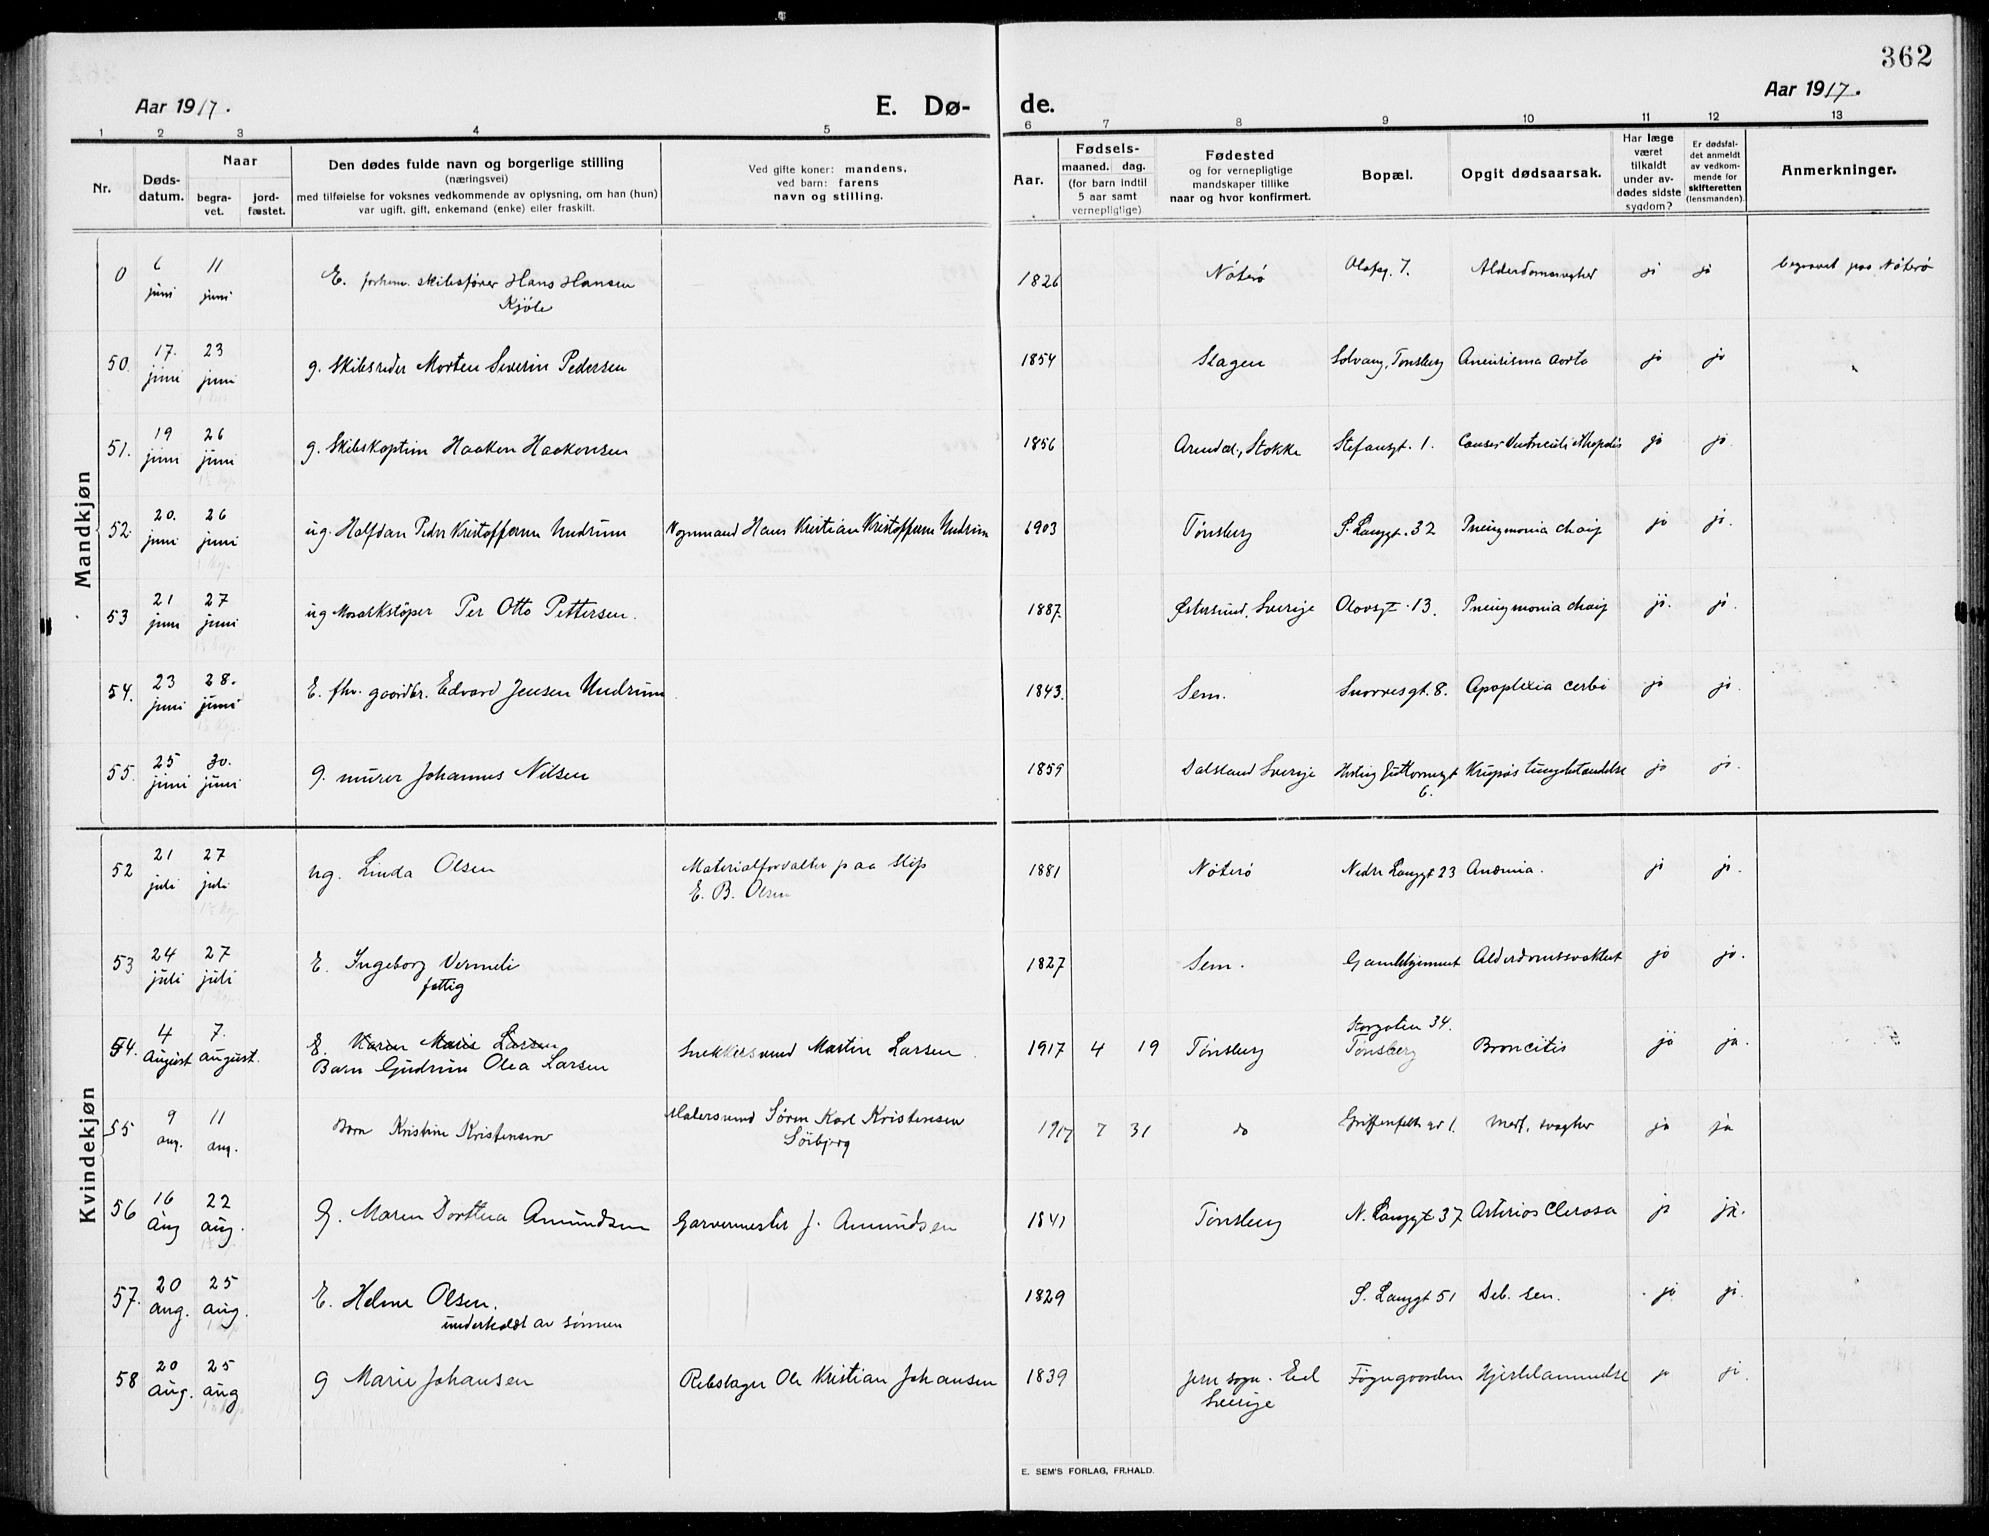 362
Aar 1917.
E. Dø-
de.
Aar 1917.
1 2 3 4 5 6 7 8 9 10 11 12 13
Nr.
Døds-
datum.
Naar
begra-
vet.
jord-
fæstet.
Den dødes fulde navn og borgerlige stilling
(næringsvei)
med tilføielse for voksnes vedkommende av oplysning, om han (hun)
var ugift, gift, enkemand (enke) eller fraskilt.
Ved gifte koner: mandens,
ved barn: farens
navn og stilling.
Aar.
Fødsels-
maaned. dag.
(for barn indtil
5 aar samt
vernepligtige)
Fødested
og for vernepligtige
mandskaper tillike
naar og hvor konfirmert.
Bopæl.
Opgit dødsaarsak.
Har læge
været
tilkaldt
under av-
dødes sidste
sygdom?
Er dødsfal-
det anmeldt
av vedkom-
mende for
skifteretten
(lensmanden).
Anmerkninger.
Mandkjøn
0 6 juni 11 juni E. forhenv. skibsfører Hans Hansen 1826 Nøterø Olafsg. 7. Alderdomsvaghed ja ja begravet paa Nøterø
Kjøle
50. 17. juni 23 juni g. Skibsreder Morten Severin Pedersen 1854 Slagen Solvang, Tønsberg Aneurisma aorta ja ja
51. 19 juni 26 juni g. Skibskaptein Haaken Haakensen 1856 Arendal, Stokke Stefansgt. 1. Cancer Ventriculi ja ja
52. 20. juni 26 juni ug. Halfdan Peder Kristoffersen Undrum Vognmand Hans Kristian Kristoffersen Undrum 1903 Tønsberg S. Langgt. 32 ja ja.
53 21 juni 27 juni ug Per Otto Pettersen. 1887. Østersund, Sverige Olavsgt. 13. ja. ja.
54. 23 juni 28. juni E. fhv. gaardbr. Edvard Jensen Undrum 1843. Sem. Snorresgt. 8. Apoplexia cerbi ja ja.
55. 25 juni 30. juni g. murer Johannes Nilsen 1859 Dalsland Sverige Hertug Guttormsgt Krupøs lungebetændelse ja ja.
6.
Kvindekjøn
52 21 juli 27 juli ug. Linda Olsen Materialforvalter paa slip 1881 Nøterø Nedre Langgt 23 Anæmia. ja ja.
E. B. Olsen
53 24 juli 27 juli E. Ingeborg Vermeli 1827 Sem. Gamlehjemmet Alderdomssvakhet ja ja.
fattig
54. 4 August 7. august. E. Karen Marie Larsen Snekkersvend Martin Larsen 1917 4 19 Tønsberg Storgaten 34. Tønsberg Broncitis ja ja.
Barn Gudrun Olea Larsen
55 9 aug. 11 aug. Barn Kristine Kristensen Malersvend Søren Karl Kristensen 1917 7 31 do Griffenfeldts gt 1. Medf. svaghet ja ja
Søibjerg
56 16 aug 22 aug. G. Maren Dorthea Amundsen Garvermester J. Amundsen 1841 Tønsberg N. Langgt 37 Arterios Clerosa ja ja.
57. 20 aug. 25 aug. E. Helene Olsen. 1829 S. Langgt 51 Deb. sen. ja ja.
underholdt av sønnen
58 20 aug. 25 aug g Marie Johansen Rebslager Ole Kristian Johansen 1839 sogn. Ed Føyngaarden Hjertelammelse ja ja.
Sverige
E. SEM'S FORLAG, FR.HALD.